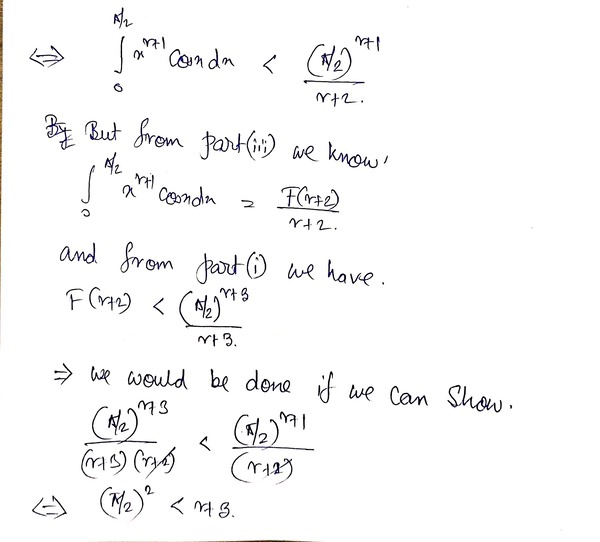 ⇔ ∫₀^{π/2} x^{r+1} cosx dx < (π/2)^{r+1} / (r+2).
But from part (iii) we know,
∫₀^{π/2} x^{r+1} cosx dx = F(r+2) / (r+2).
and from part (i) we have.
F(r+2) < (π/2)^{r+3} / (r+3).
⇒ we would be done if we can show.
(π/2)^{r+3} / ((r+3)(r+2)) < (π/2)^{r+1} / (r+2)
⇔ (π/2)² < r+3.